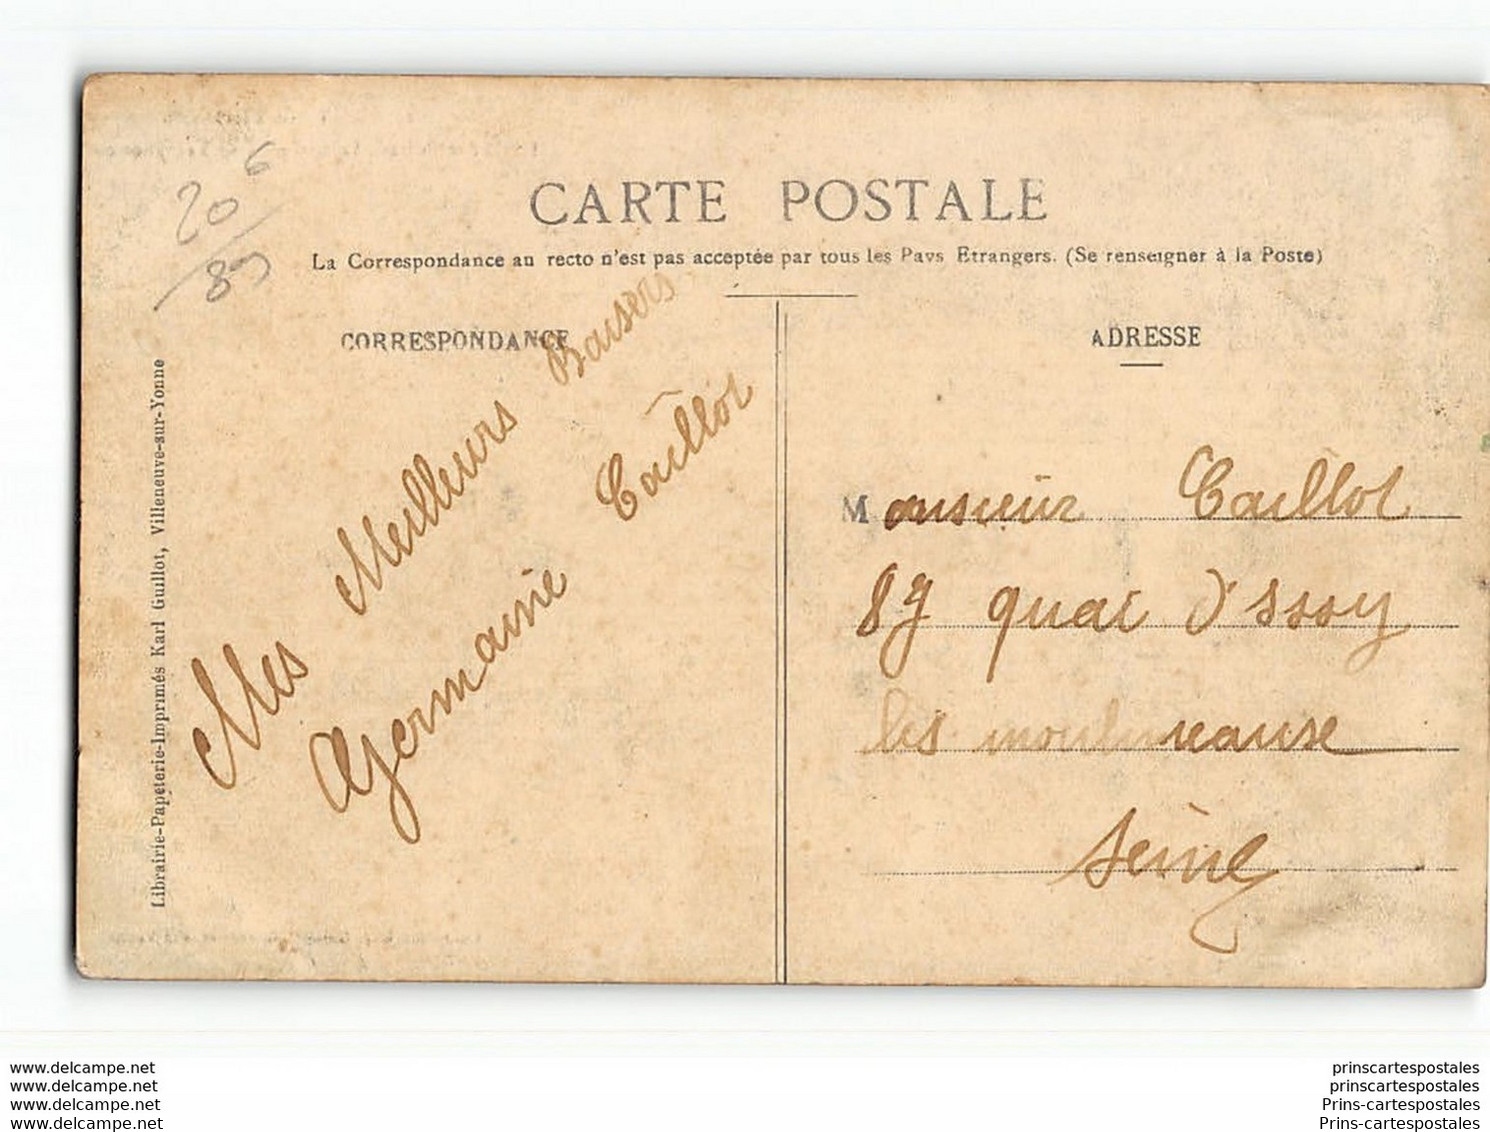 20 6
89
CARTE POSTALE
La Correspondance au recto n'est pas acceptée par tous les Pays Etrangers. (Se renseigner à la Poste)
CORRESPONDANCE
ADRESSE
Librairie-Papeterie-Imprimés Karl Guillot, Villeneuve-sur-Yonne
Mes Meilleurs Baisers
Germaine Caillot
Monsieur Caillot
87 quai d'Issy
les moulineause
Seine
www.delcampe.net
www.delcampe.net
www.delcampe.net
www.delcampe.net
prinscartespostales
prinscartespostales
Prins-cartespostales
Prins-cartespostales